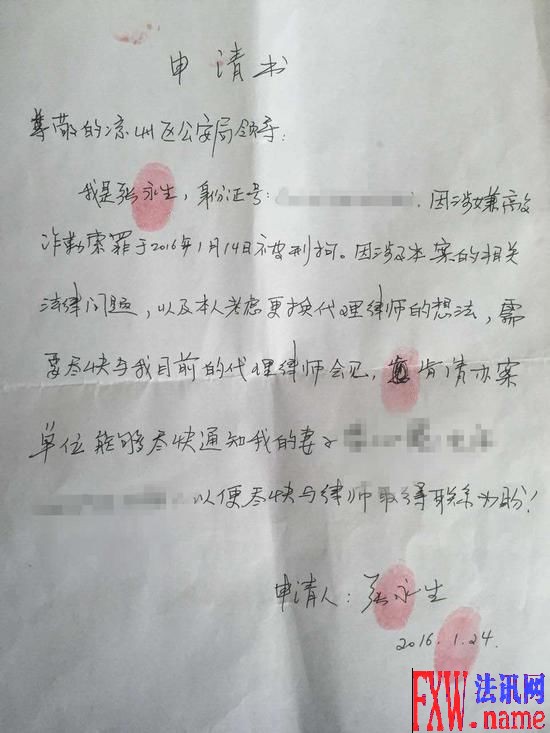 申请书
尊敬的凉州区公安局领导：
我是张永生，身份证号：因涉嫌敲
诈勒索罪于2016年1月14日被刑拘。因涉及本案的相关
法律问题，以及本人考虑更换代理律师的想法，需
要尽快与我目前的代理律师会见，肯请办案
单位能够尽快通知我的妻子
以便尽快与律师取得联系为盼！
申请人：张永生
2016.1.24.
FXW 法讯网
.name